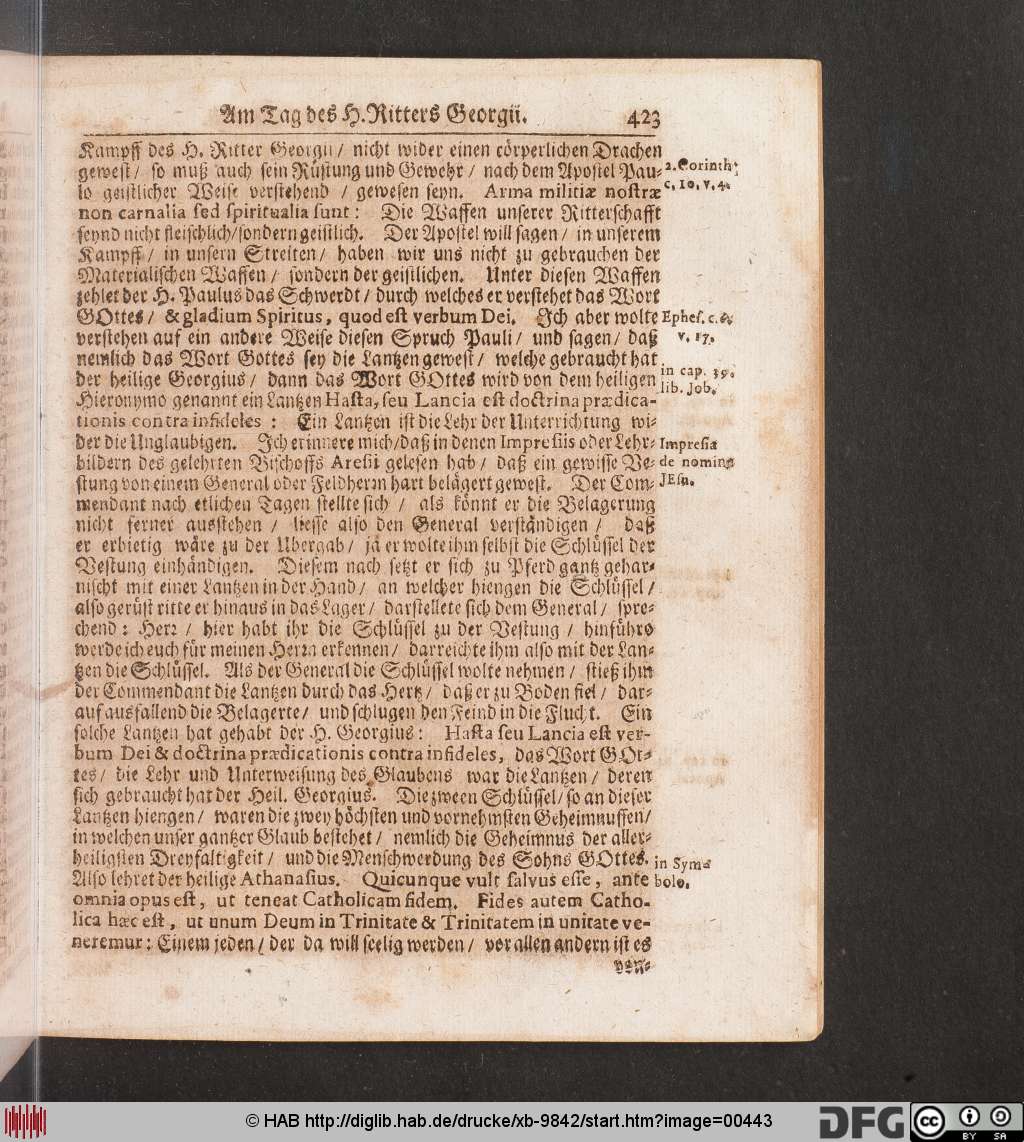 Am Tag des H. Ritters Georgii. 423
Kampff des H. Ritter Georgii / nicht wider einen cörperlichen Drachen
gewest / so muß auch sein Rüstung und Gewehr / nach dem Apostel Pau-
lo geistlicher Weise verstehend / gewesen seyn. Arma militiæ nostræ
non carnalia sed spiritualia sunt: Die Waffen unserer Ritterschafft
seynd nicht fleischlich/sondern geistlich. Der Apostel will sagen / in unserem
Kampff / in unsern Streiten / haben wir uns nicht zu gebrauchen der
Materialischen Waffen / sondern der geistlichen. Unter diesen Waffen
zehlet der H. Paulus das Schwerdt / durch welches er verstehet das Wort
GOttes / & gladium Spiritus, quod est verbum Dei. Ich aber wolte
verstehen auf ein andere Weise diesen Spruch Pauli / und sagen / daß
nemlich das Wort Gottes sey die Lantzen gewest / welche gebraucht hat
der heilige Georgius / dann das Wort GOttes wird von dem heiligen
Hieronymo genannt ein Lantzen Hasta, seu Lancia est doctrina prædica-
tionis contra infideles : Ein Lantzen ist die Lehr der Unterrichtung wi-
der die Unglaubigen. Ich erinnere mich/daß in denen Impresiis oder Lehr-
bildern des gelehrten Bischoffs Aresii gelesen hab / daß ein gewisse Ve-
stung von einem General oder Feldherrn hart belägert gewest. Der Com-
mendant nach etlichen Tagen stellte sich / als könnt er die Belagerung
nicht ferner ausstehen / liesse also den General verständigen / daß
er erbietig wäre zu der Ubergab / ja er wolte ihm selbst die Schlüssel der
Vestung einhändigen. Diesem nach setzt er sich zu Pferd gantz gehar-
nischt mit einer Lantzen in der Hand / an welcher hiengen die Schlüssel /
also gerüst ritte er hinaus in das Lager / darstellete sich dem General / spre-
chend: Herr / hier habt ihr die Schlüssel zu der Vestung / hinführo
werde ich euch für meinen Herrn erkennen / darreichte ihm also mit der Lan-
tzen die Schlüssel. Als der General die Schlüssel wolte nehmen / stieß ihm
der Commendant die Lantzen durch das Hertz / daß er zu Boden fiel / dar-
auf ausfallend die Belagerte / und schlugen den Feind in die Flucht. Ein
solche Lantzen hat gehabt der H. Georgius: Hasta seu Lancia est ver-
bum Dei & doctrina prædicationis contra infideles, das Wort GOt-
tes / die Lehr und Unterweisung des Glaubens war die Lantzen / deren
sich gebraucht hat der Heil. Georgius. Die zween Schlüssel/ so an dieser
Lantzen hiengen / waren die zwey höchsten und vornehmsten Geheimnussen/
in welchen unser gantzer Glaub bestehet / nemlich die Geheimnus der aller-
heiligsten Dreyfaltigkeit / und die Menschwerdung des Sohns GOttes.
Also lehret der heilige Athanasius. Quicunque vult salvus esse, ante
omnia opus est, ut teneat Catholicam fidem. Fides autem Catho-
lica hæc est, ut unum Deum in Trinitate & Trinitatem in unitate ve-
neremur: Einem jeden / der da will seelig werden / vor allen andern ist es
von-
2. Corinth.
c. 10. v. 4.
Ephes. c. 6.
v. 17.
in cap. 39.
lib. Job.
Impresia
de nomine
JEsu.
in Sym-
bolo.
© HAB http://diglib.hab.de/drucke/xb-9842/start.htm?image=00443
DFG
cc
BY SA